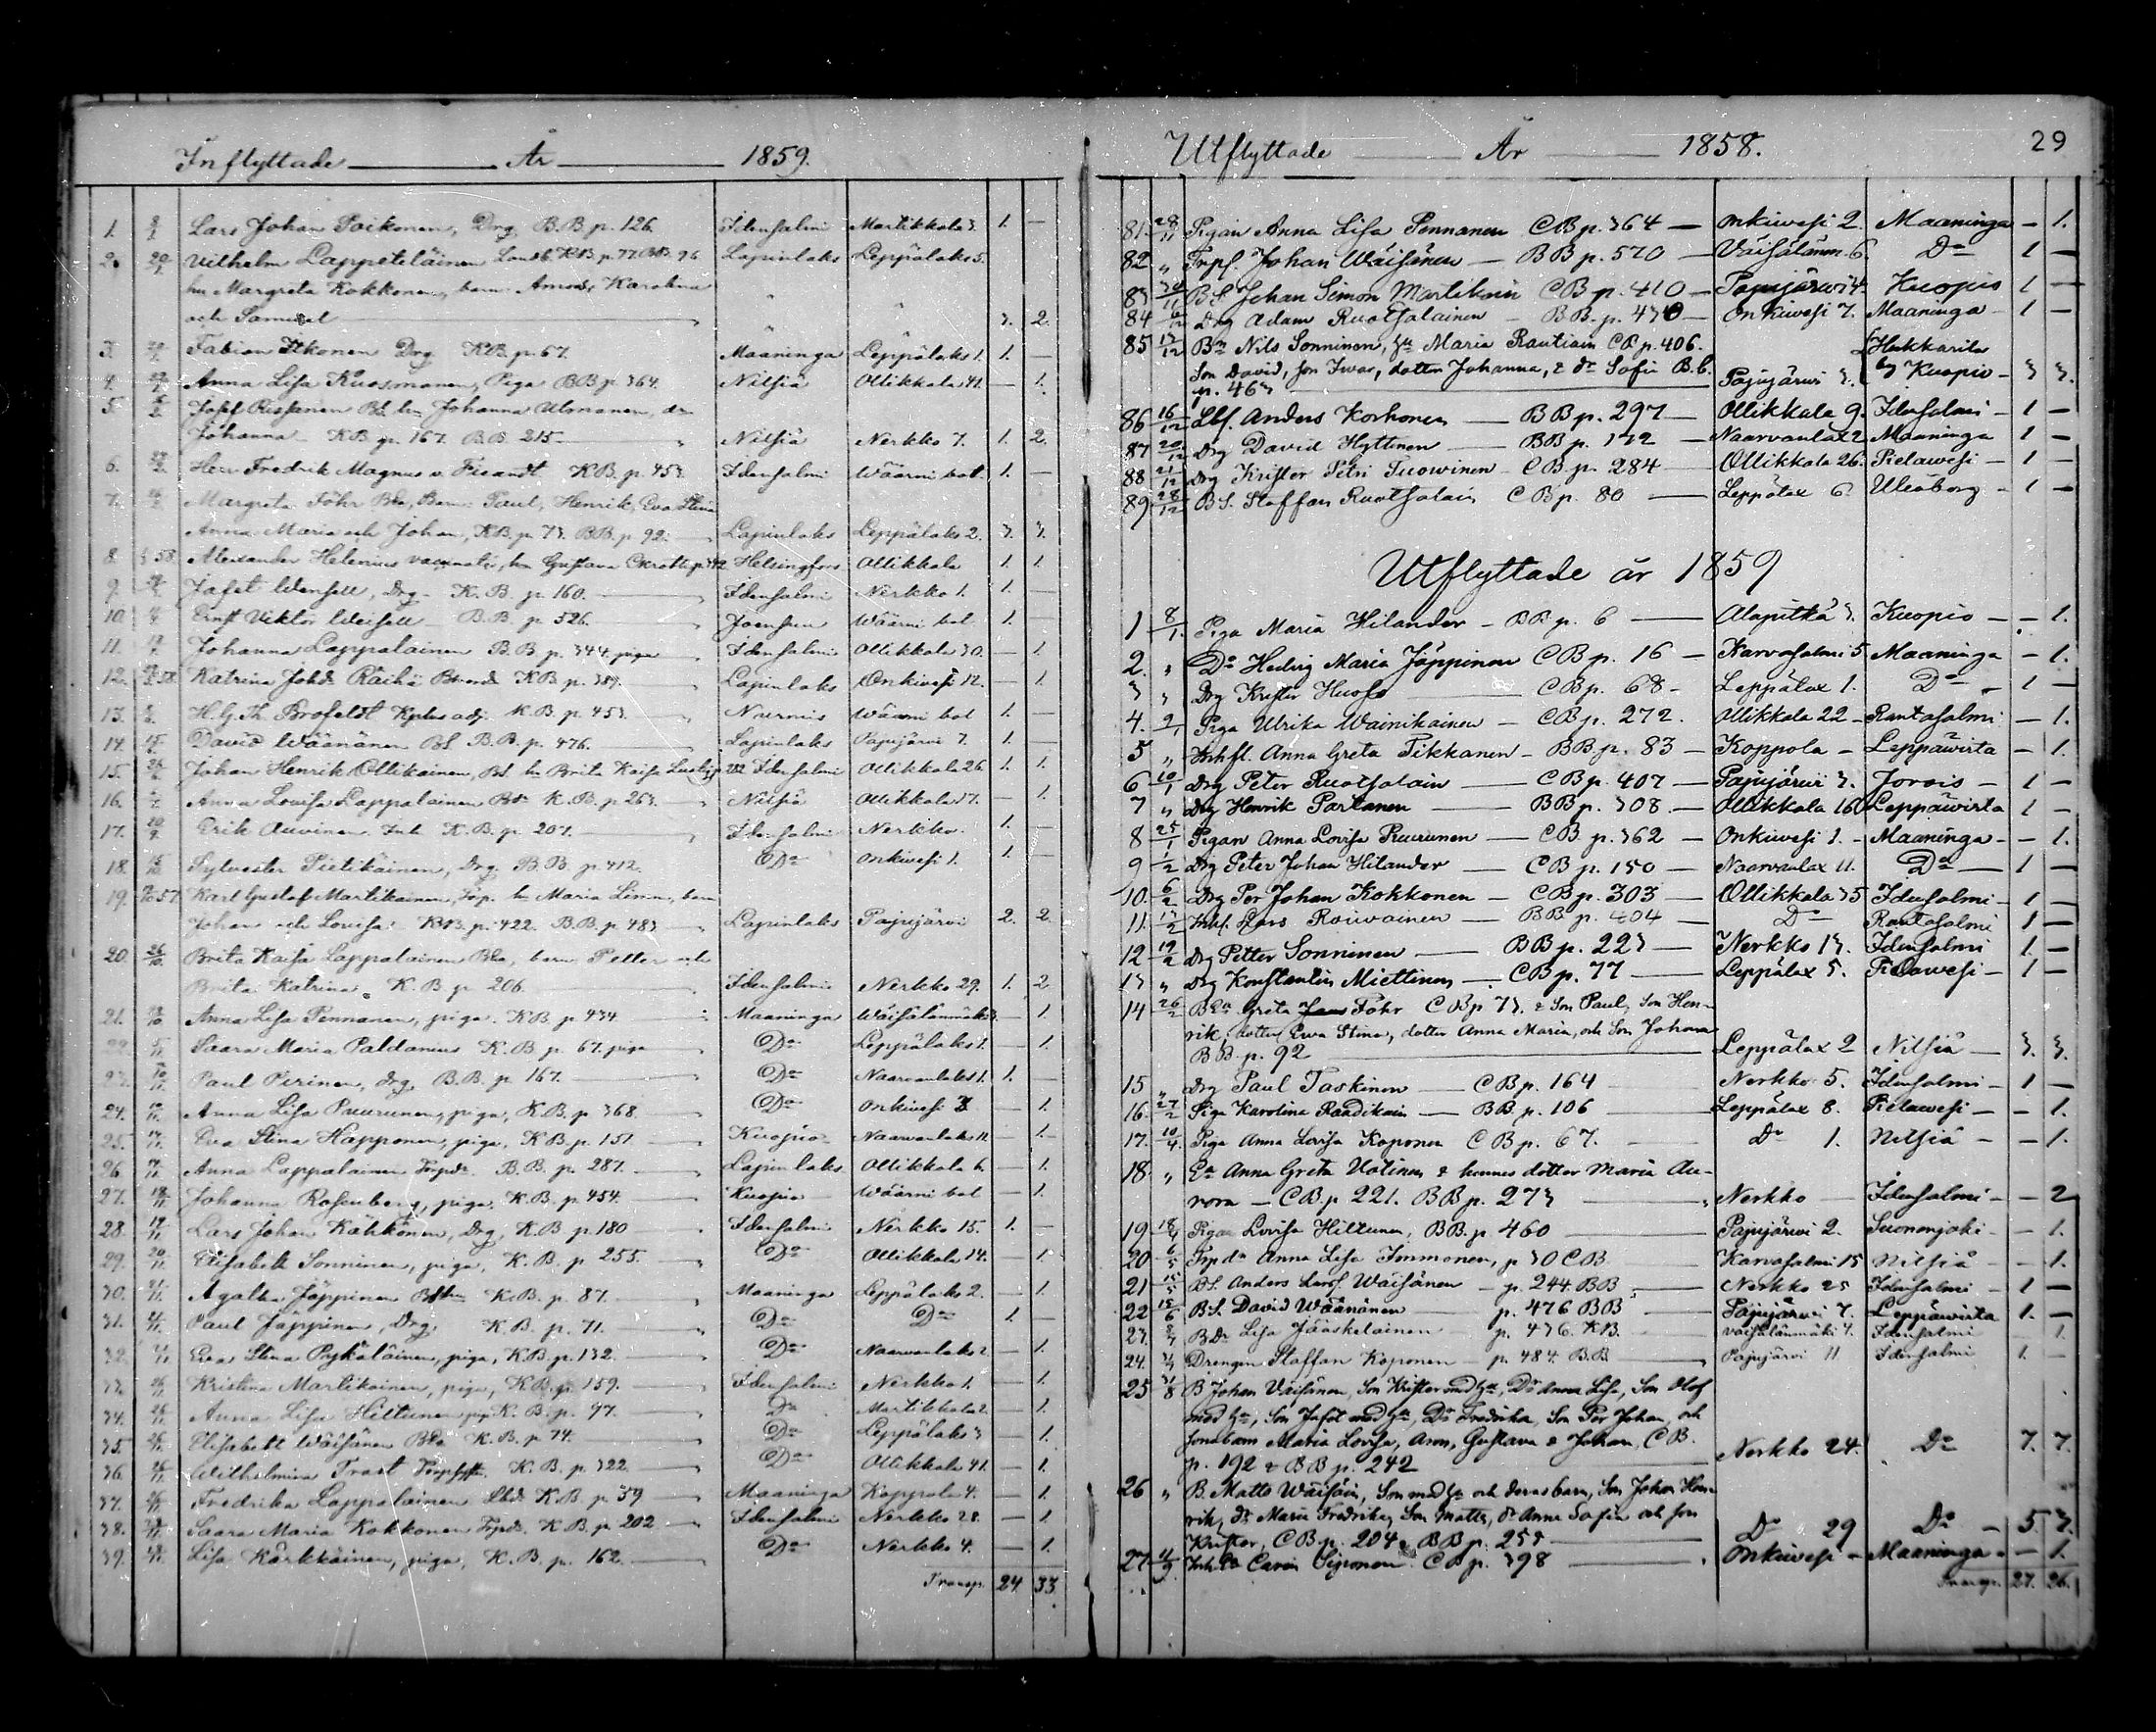 Inflyttade År 1859.
1. 8/1 Lars Johan Poikonen, Drg B.B. p. 126. Idensalmi Martikkala 3. 1. —
2. 20/1 Vilhelm Lappeteläinen K.B. p. 77. B.B. 96 Lapinlaks Leppälaks 5.
hu Margreta Kokkonen, barn Karolina " "
och Samuel 3. 2.
3. Fabian Itkonen Drg K.B. p. 67. Maaninga Leppälaks 1. 1. —
4. Anna Lisa Kuosmanen, Piga BB p. 364. Nilsiä Ollikkala 41. — 1.
5. Josef Rissanen BS. hu Johanna Ulmanen, dr
Johanna K.B. p. 167. B.B. 215. Nilsiä Nerkko 7. 1. 2.
6. Herr Fredrik Magnus v. Fieandt K.B. p. 453. Idensalmi Wäärni bol. 1. —
7. Margreta Föhr Bda, Barn Paul, Henrik, Eva Stina
Anna Maria och Johan, K.B. p. 73. BB. p. 92. Lapinlaks Leppälaks 2. 3. 3.
8. Alexander Helenius hu Gustava Helsingfors Ollikkala 1. 1
9. Jafet Drg. K.B. p. 160. Idensalmi Nerkko 1. 1. —
10. Ernst Viktor B.B. p. 526. Joensuu Wäärni bol 1. —
11. Johanna Lappalainen B.B. p. 344. piga Idensalmi Ollikkala 30. — 1
12. Katrina Johds Räihä K.B. p. 389. Lapinlaks Onkivesi 12. — 1
13. H. G. Th. Brofeldt Kplns adj. K.B. p. 453. Nurmis Wäärni bol 1. —
14. David Wäänänen BS. B.B. p. 476. Lapinlaks Papujärvi 7. 1. —
15. Johan Henrik Ollikainen, BS. hu Brita Kaisa Idensalmi Ollikkala 26. 1. 1.
16. Anna Lovisa Lappalainen Bdr K.B. p. 263. Nilsiä Ollikkala 17. — 1.
17. 10/9 Erik Auvinen Inh K.B. p. 207. Idensalmi Nerkko. 1. —
18. Sylvester Pietikäinen, Drg. B.B. p. 412. Do Onkivesi 1. 1. —
19. Karl Gustaf Martikainen, hu Maria Limn, barn
Johan och Lovisa K.B. p. 422. B.B. p. 483 Lapinlaks Papujärvi 2. 2.
20. 26/10 Brita Kaisa Lappalainen Bda, barn Petter och
Brita Katrina. K.B. p. 206. Idensalmi Nerkko 29. 1. 2
21. Anna Lisa Pennanen, piga. K.B. p. 434 Maaninga Wäisälänmäki — 1
22. 5/11 Saara Maria Paldanius K.B. p. 67. piga Do Leppälaks 1. — 1.
23. Paul Pirinen, drg, B.B. p. 167. Do Naarvanlaks 1. 1. —
24. Anna Lisa Puurunen, piga, K.B. p. 368. Do Onkivesi — 1.
25. Eva Stina Happonen, piga, K.B. p. 151. Kuopio Naarvanlaks 11. — 1.
26. Anna Lappalainen B.B. p. 287. Lapinlaks Ollikkala 6. — 1.
27. 18/11 Johanna Rosenberg, piga, K.B. p. 454. Kuopio Wäärni bol — 1.
28. Lars Johan Kähkönen, Drg, K.B. p. 180 Idensalmi Nerkko 15. 1. —
29. 20/11 Elisabeth Sonninen, piga, K.B. p. 255. Do Ollikkala 14. — 1.
30. 21/11 Agatha Jäppinen K.B. p. 87. Maaninga Leppälaks 2. — 1
31. Paul Jäppinen, Drg, K.B. p. 71. Do Do 1. —
32. Eva Stina Pykäläinen, piga, K.B. p. 132. Do Naarvanlaks 2 — 1
33. 26/11 Kristina Martikainen, piga, K.B. p. 159. Idensalmi Nerkko 1. — 1.
34. 26/11 Anna Lisa Hiltunen K.B. p. 97. Do Martikkala 2 — 1.
35. 26/11 Elisabeth Wäisänen Bda K.B. p. 74. Do Leppälaks 3 — 1.
36. 26/11 Wilhelmina Trast K.B. p. 322. Do Ollikkala 41. — 1.
37. 26/11 Fredrika Lappalainen K.B. p. 39 Maaninga Koppola 4. — 1.
38. Saara Maria Kokkonen K.B. p. 202 Idensalmi Nerkko 28. — 1
39. Lisa Kärkkäinen, piga, K.B. p. 162. Do Nerkko 4. — 1.
Transp. 24 33
Utflyttade År 1858. 29
81. 28/11 Pigan Anna Lisa Pennanen CB p. 364 — Onkiwesi 2. Maaninga — 1.
82. " Johan Wäisänen — BB p. 570 — Väisälänm. 6. Do 1 —
83 30/11 B.S. Johan Simon Martikain CB p. 410 — Papujärwi 4. Kuopio 1 —
84 6/12 Drg Adam Ruotsalainen — BB. p. 430 — Onkiwesi 7. Maaninga — 1 —
85 13/12 Bn Nils Sonninen, Hu Maria Rautiain CB p. 406. Hukkarila
Son David, son Iwar, dotter Johanna, & dr Sofia B.B.
p. 463 Papujärwi 3. by Kuopio — 3 3.
86 16/12 Anders Korhonen — BB p. 297 — Ollikkala 9. Idensalmi — 1 —
87 20/12 Drg David Hyttinen — BB p. 172 — Naarvanlax 2 Maaninga 1 —
88 21/12 Drg Krister Petri Tuowinen — CB p. 284 — Ollikkala 26. Pielawesi — 1 —
89 28/12 BS. Staffan Ruotsalain CB p. 80 — Leppälax 6. Uleaborg — 1 —
Utflyttade år 1859
1 8/1. Piga Maria Hilander — BB p. 6 — Alapitkä 3. Kuopio — — 1.
2. " Do Hedvig Maria Jäppinen CB p. 16 — Karvasalmi 5 Maaninga — 1.
3 " Drg Krister Huoso — CB p. 68 — Leppälax 1. Do — 1 —
4. 9/1 Piga Ulrika Wainikainen — CB p. 272. Ollikkala 22 — Rantasalmi — 1.
5 " Anna Greta Tikkanen — BB p. 83 — Koppola — Leppäwirta — 1.
6 10/1 Drg Peter Ruotsalain — CB p. 407 — Papujärwi 3. Jorois — 1 —
7 " Drg Henrik Partanen — BB p. 308 — Ollikkala 16 Leppäwirta 1 —
8 25/1 Pigan Anna Lovisa Puurunen — CB p. 362 — Onkiwesi 1. — Maaninga — — 1.
9 1/2 Drg Peter Johan Hilander — CB p. 150 — Naarvanlax 11. Do — 1 —
10. 6/2 Drg Per Johan Kokkonen — CB p. 303 — Ollikkala 35 Idensalmi — 1 —
11. 13/2 Lars Rouvainen — BB p. 404 — Do Rantasalmi 1 —
12 19/2 Drg Petter Sonninen — BB p. 223 — Nerkko 13. Idensalmi 1 —
13 " Drg Konstantin Miettinen — CB p. 77 — Leppälax 5. Pielawesi — 1 —
14 26/2 Greta Föhr CB p. 73. & Son Paul, Son Hen-
rik, dotter Ewa Stina, dotter Anna Maria, och Son Johan
BB. p. 92 Leppälax 2 Nilsiä — 3. 3.
15 " Drg Paul Taskinen — CB p. 164 Nerkko 5. Idensalmi — 1 —
16. 27/2 Piga Karolina Raadikain — BB. p. 106 Leppälax 8. Pielawesi — — 1.
17. 10/4. Piga Anna Lovisa Koponen CB p. 67. — Do 1. Nilsiä — — 1.
18. " Anna Greta Uotinen & hennes dotter Maria Au-
rora — CB p. 221. BB p. 273 Nerkko Idensalmi — — 2
19 18/4 Pigan Lovisa Hiltunen, BB. p 460 Papujärwi 2. Suonenjoki — — 1.
20 6/5 Anna Lisa Immonen, p 30 CB. Karvasalmi 15 Nilsiä — — 1.
21 15/5 BS. Anders Larss Wäisänen — p. 244. BB Nerkko 25 Idensalmi — 1 —
22 15/6 BS. David Wäänänen — p. 476 BB Papujärwi 7. Leppäwirta 1. —
23. Bdr Lisa Jääskeläinen p. 436. KB. Väisälänmäki 4. Idensalmi 1.
24. Drengen Staffan Koponen — p. 484. B.B. Papujärvi 11 Idensalmi 1. —
25 31/8 B Johan Väisänen, Son Krister med Hu, Dr Anna Lisa, Son Olof
med Hu, Son Jafet med Hu, Dr Fredrika, Son Per Johan, och
sonebarn Maria Lovisa, Aron, Gustava & Johan, CB.
p. 192 & BB p. 242 Nerkko 24. Do 7. 7.
26 " B. Matts Wäisäin, Son med Hu och deras barn, Son Johan Hen-
rik, dr Maria Fredrika, Son Matts, dr Anna Sofia och son
Krister, CB p. 204, BB p. 253 Do 29 Do — 5. 3.
27 Carin Siponen CB p. 398 Onkiwesi — Maaninga — — 1.
Transp. 27. 26.